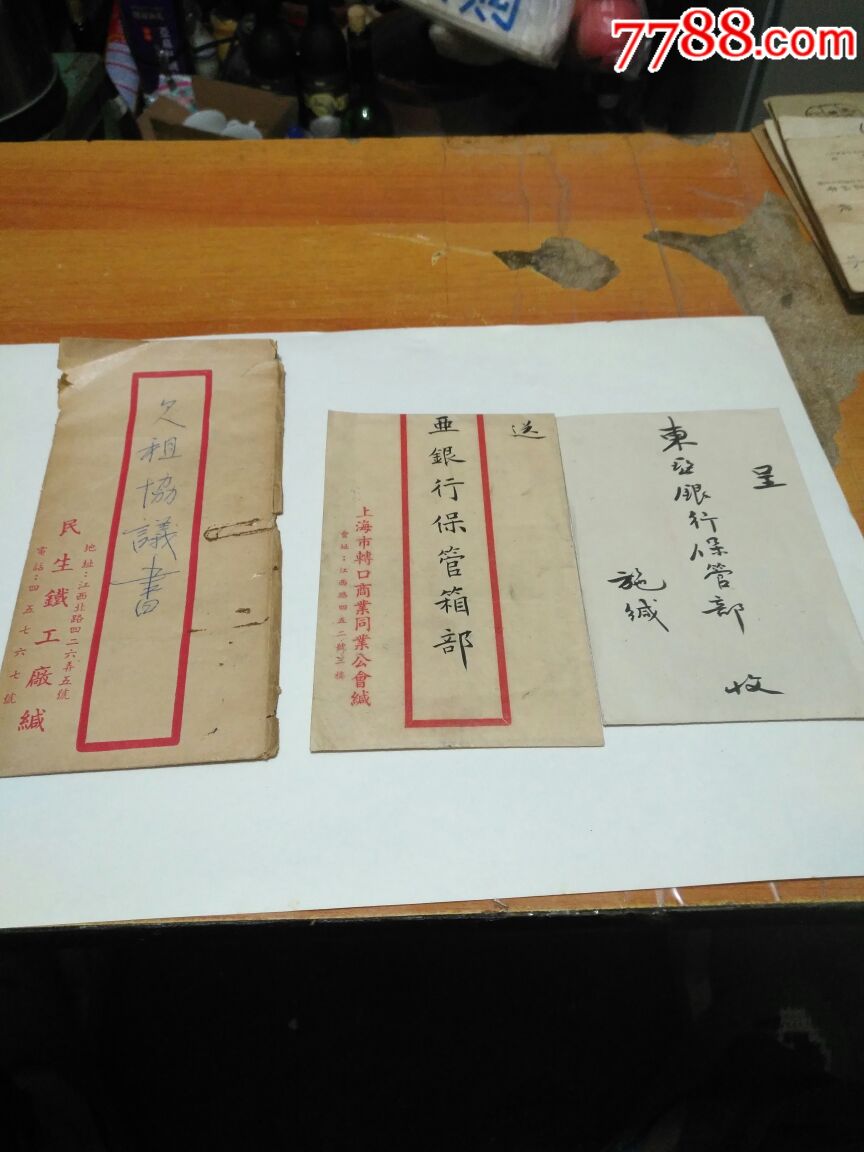 7788.com
购
欠租協議書
地址:江西北路四二六弄五號
民生鐵工廠緘
電話:四五七六七號
送
亜銀行保管箱部
上海市轉口商業同業公會緘
會址:江西路四五二號三樓
呈
東亞銀行保管部
收
施緘